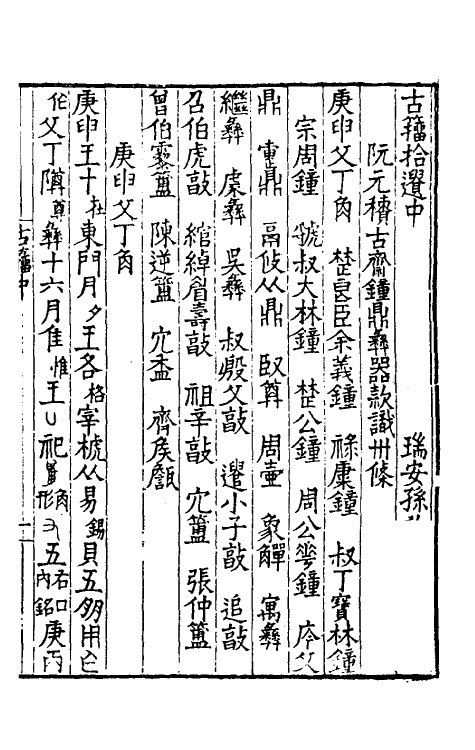 古籒拾遺中 瑞安孫
阮元積古齋鐘鼎彝器款識卅條
庚申父丁角 楚良臣余義鐘 祿康鐘 叔丁寶林鐘
宗周鐘 虢叔大林鐘 楚公鐘 周公華鐘 序父
鼎 疐鼎 鬲攸从鼎 臤尊 周壷 象觶 寓彝
繼彝 彔彝 吳彝 叔殷父敲 遣小子敲 追敲
召伯虎敲 綰綽眉壽敲 祖辛敲 冗簠 張仲簠
曾伯霥簠 陳逆簠 冗盉 齊矦甔
庚申父丁角
庚申王十在東門月夕王各格宰椃从易錫貝五朋用乍
伯父丁䵼尊彝十六月隹惟王 祀 角形 五右口內銘庚丙
古籒中 一